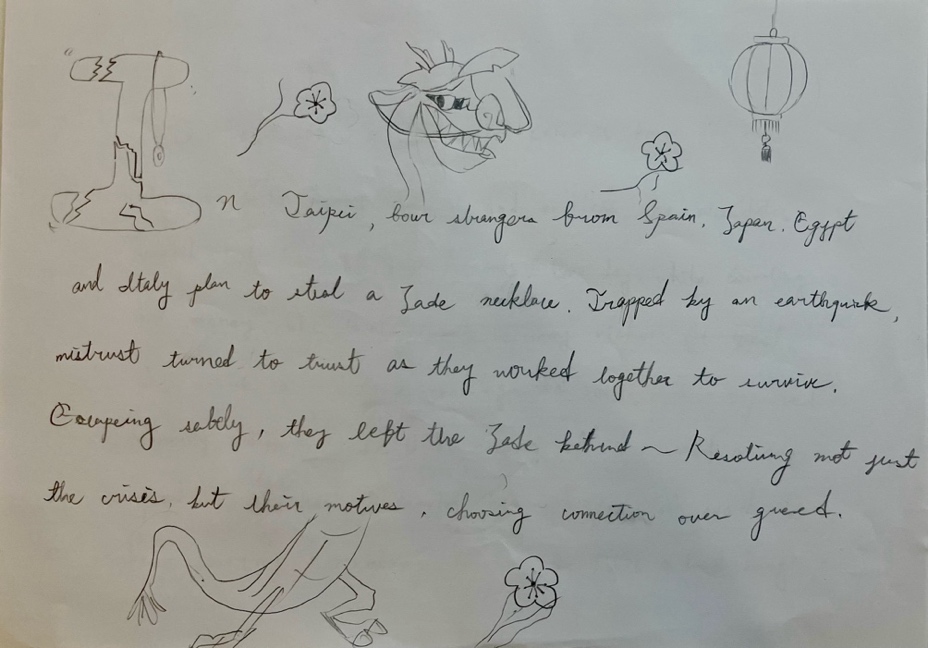 In Taipei, four strangers from Spain, Japan, Egypt
and Italy plan to steal a Jade necklace. Trapped by an earthquake,
mistrust turned to trust as they worked together to survive.
Escapeing safely, they left the Jade behind ~ Resolving not just
the crisis, but their motives, choosing connection over greed.